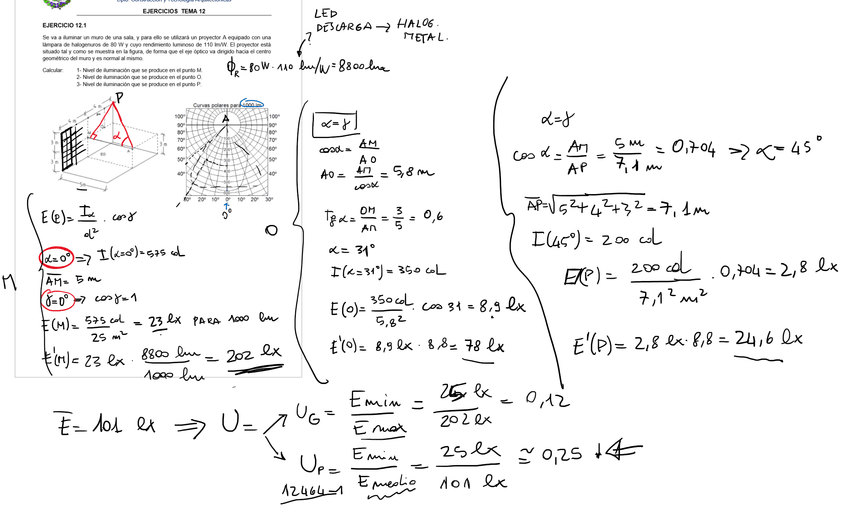 Dpto. Construcción y Tecnología Arquitectónicas
EJERCICIOS TEMA 12
EJERCICIO 12.1
Se va a iluminar un muro de una sala, y para ello se utilizará un proyector A equipado con una
lámpara de halogenuros de 80 W y cuyo rendimiento luminoso de 110 lm/W. El proyector está
situado tal y como se muestra en la figura, de forma que el eje óptico va dirigido hacia el centro
geométrico del muro y es normal al mismo.
Calcular:
1- Nivel de iluminación que se produce en el punto M.
2- Nivel de iluminación que se produce en el punto O.
3- Nivel de iluminación que se produce en el punto P.
LED
DESCARGA → HALOG.
METAL.
?
ϕR = 80W · 110 lm/W = 8800 lm
P
α
5 m
Curvas polares para 1000 lm
A
100° 100°
90° 90°
80° 80°
70° 70°
60° 60°
50° 50°
40° 40°
30° 20° 10° 0° 10° 20° 30°
0°
M
E(P) = Iα/d² · cos γ
α=0° ⇒ I(α=0°) = 575 cd
AM = 5 m
γ=0° ⇒ cos γ = 1
E(M) = 575 cd/25 m² = 23 lx PARA 1000 lm
E'(M) = 23 lx · 8800 lm/1000 lm = 202 lx
O
α = γ
cos α = AM/AO
AO = AM/cos α = 5,8 m
Tg α = OM/AM = 3/5 = 0,6
α = 31°
I(α=31°) = 350 cd
E(O) = 350 cd/5,8² · cos 31 = 8,9 lx
E'(O) = 8,9 lx · 8,8 = 78 lx
α = γ
cos α = AM/AP = 5 m/7,1 m = 0,704 ⇒ α = 45°
AP = √5²+4²+3² = 7,1 m
I(45°) = 200 cd
E(P) = 200 cd/7,1² m² · 0,704 = 2,8 lx
E'(P) = 2,8 lx · 8,8 = 24,6 lx
E = 101 lx ⇒ U =
UG = Emin/Emax = 25 lx/202 lx = 0,12
UP = Emin/Emedio = 25 lx/101 lx ≅ 0,25 ↓ ⇐
12464-1